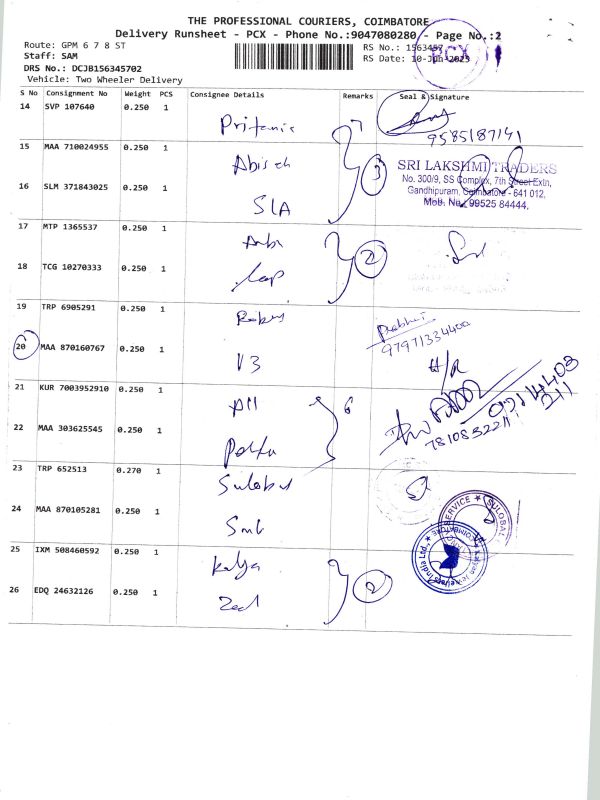 THE PROFESSIONAL COURIERS, COIMBATORE
Delivery Runsheet - PCX - Phone No.:9047080280 - Page No.:2
Route: GPM 6 7 8 ST
RS No.: 1563457
Staff: SAM
RS Date: 10-Jun-2023
DRS No.: DCJB156345702
Vehicle: Two Wheeler Delivery
PCX
S No Consignment No Weight PCS Consignee Details Remarks Seal & Signature
14 SVP 107640 0.250 1
9585187141
15 MAA 710024955 0.250 1
3
SRI LAKSHMI TRADERS
No. 300/9, SS Complex, 7th Street Extn,
Gandhipuram, Coimbatore - 641 012.
Mob. No. 99525 84444.
16 SLM 371843025 0.250 1 SLA
17 MTP 1365537 0.250 1
2
18 TCG 10270333 0.250 1
19 TRP 6905291 0.250 1
Prabhu
9797133440
20 MAA 870160767 0.250 1 V3
H/R
21 KUR 7003952910 0.250 1 All 6
22 MAA 303625545 0.250 1
23 TRP 652513 0.270 1 Sulobal
24 MAA 870105281 0.250 1
SERVICE ★ SULOBAL
25 IXM 508460592 0.250 1
Kalyan Jewellers India Ltd. ★ COIMBATORE ★
26 EDQ 24632126 0.250 1
2